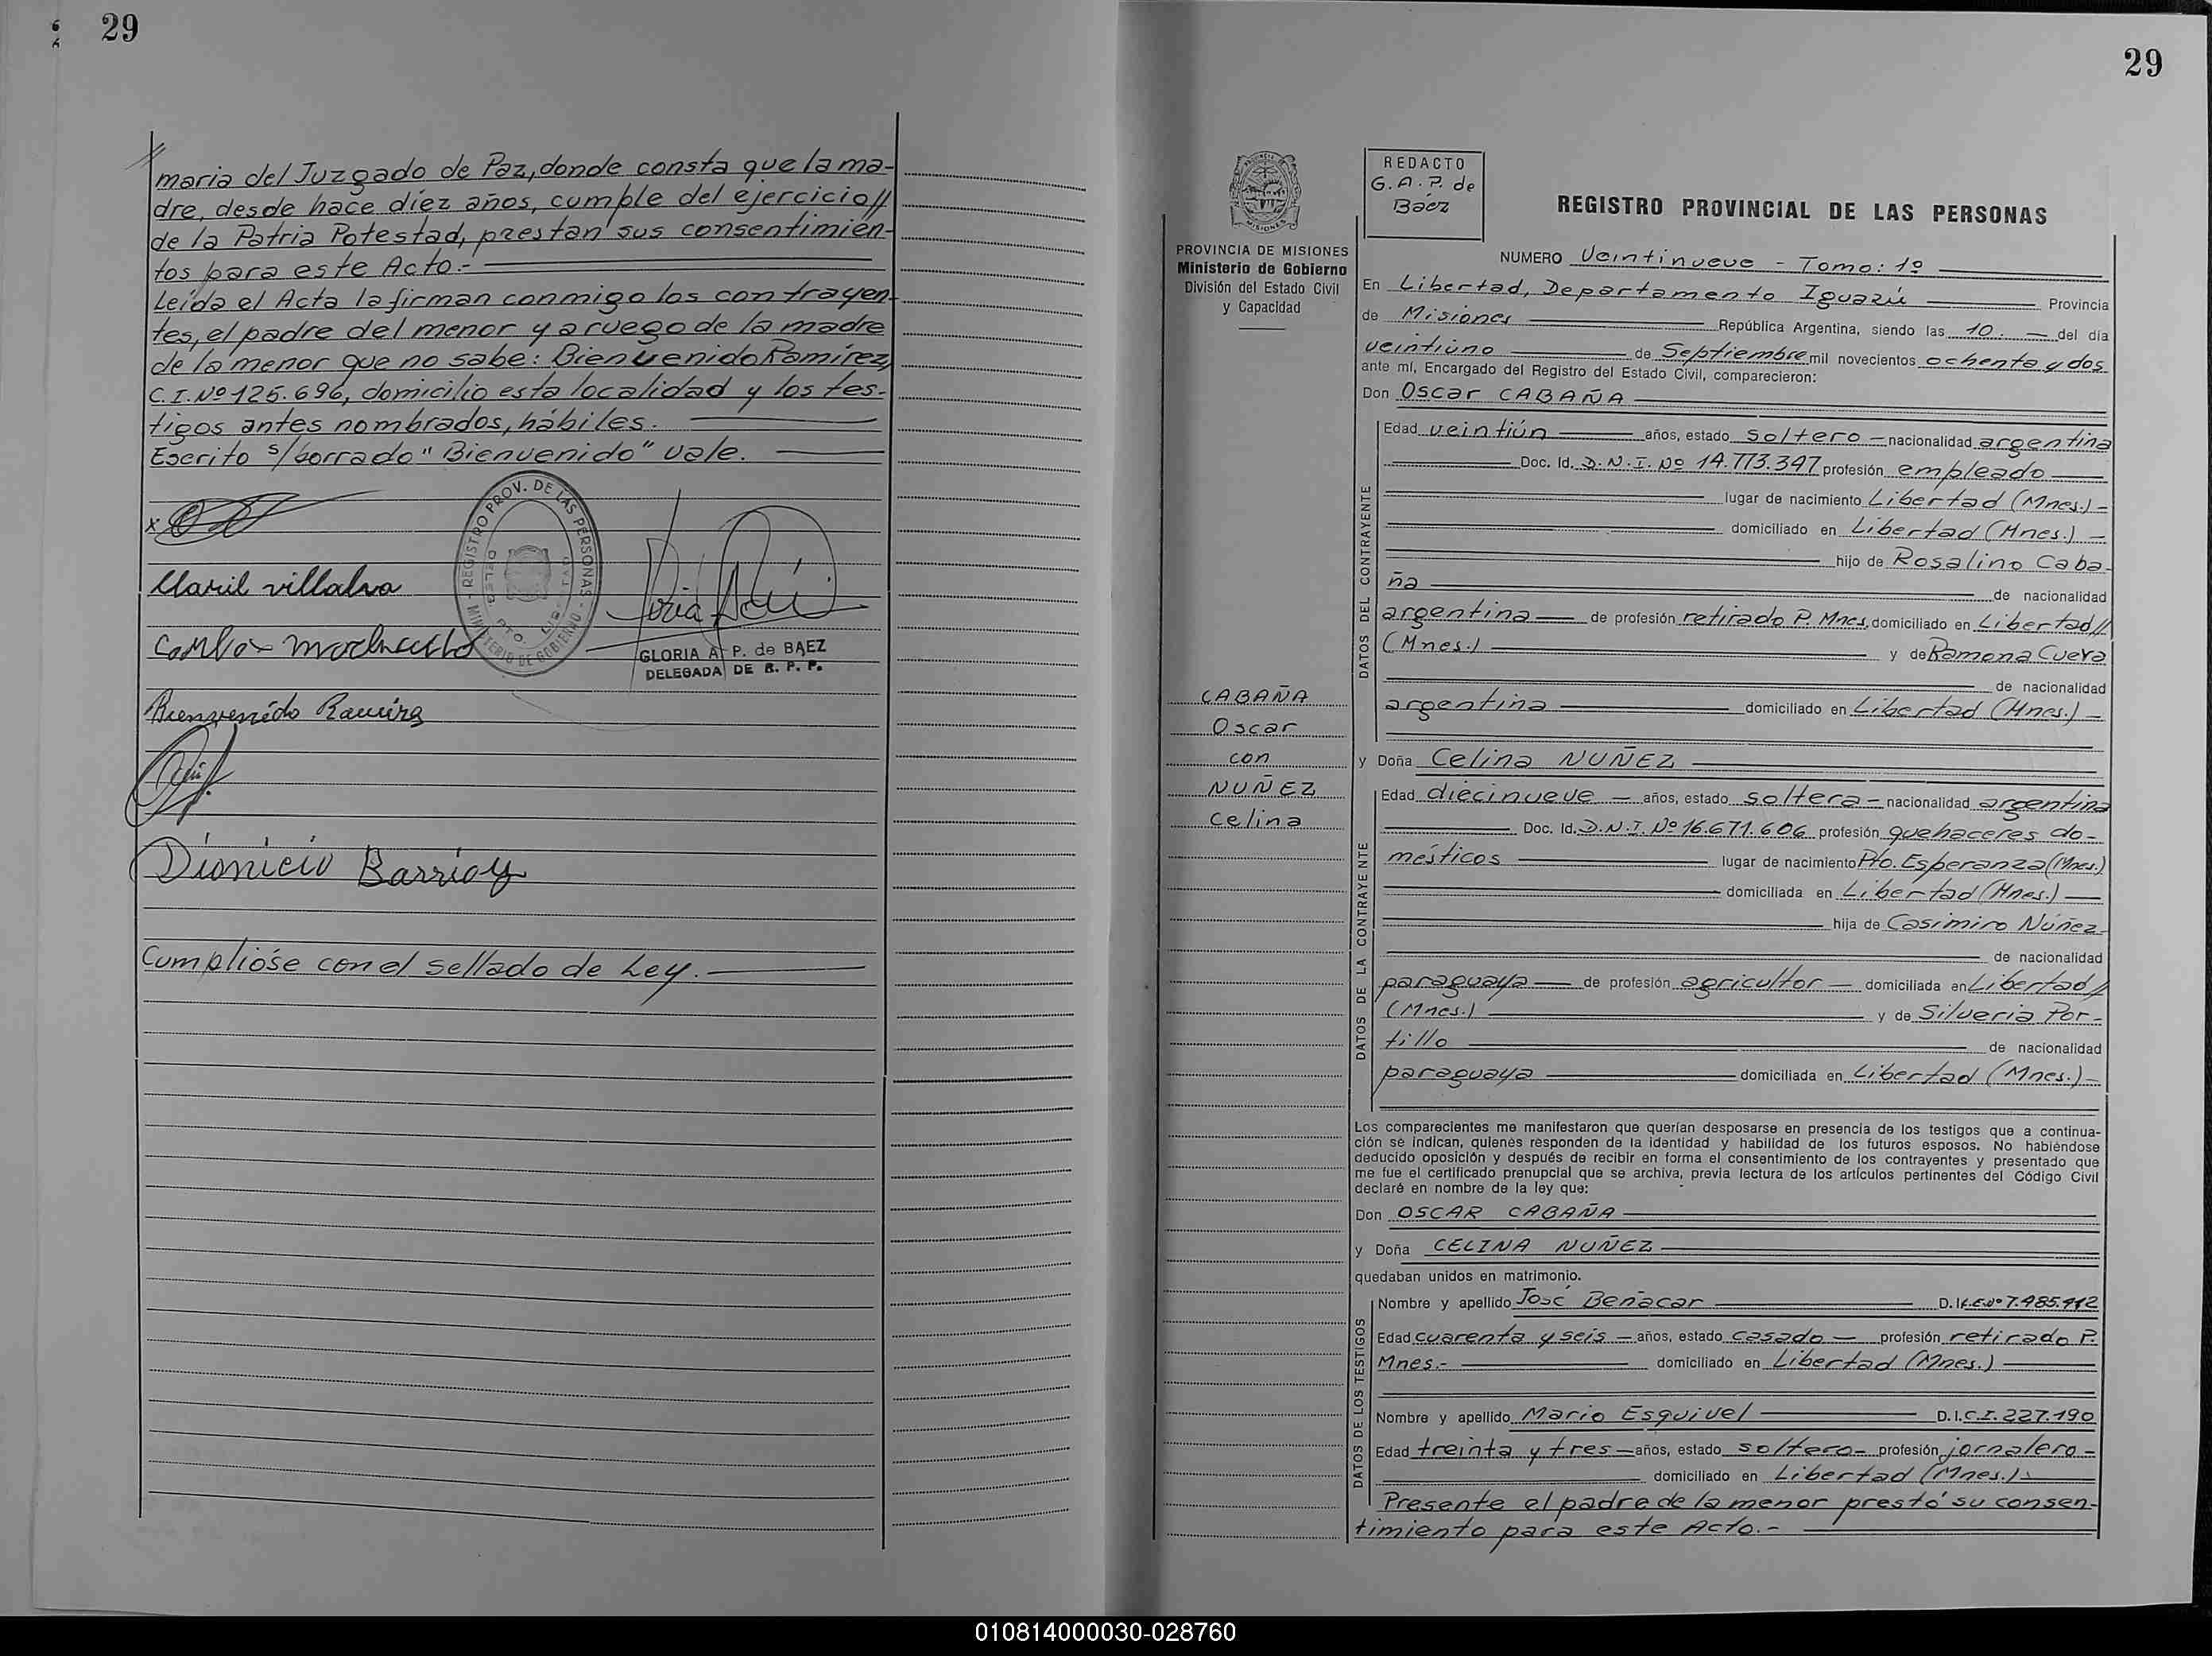 29
maria del Juzgado de Paz, donde consta que la ma-
dre, desde hace diez años, cumple del ejercicio//
de la Patria Potestad, prestan sus consentimien-
tos para este Acto.-
Leída el Acta la firman conmigo los contrayen-
tes, el padre del menor y a ruego de la madre
de la menor que no sabe: Bienvenido Ramírez,
C.I.Nº 125.696, domicilio esta localidad y los tes-
tigos antes nombrados, hábiles.
Escrito s/borrado "Bienvenido" vale.
REGISTRO PROV. DE LAS PERSONAS - MINISTERIO DE GOBIERNO -
villalva
GLORIA A. P. de BAEZ
DELEGADA DE R. P. P.
Bienvenido Ramirez
Dionicio Barrios
Cumplióse con el sellado de Ley.-
29
PROVINCIA DE MISIONES
Ministerio de Gobierno
División del Estado Civil
y Capacidad
REDACTO
G.A.P. de
Báez
REGISTRO PROVINCIAL DE LAS PERSONAS
NUMERO Veintinueve - Tomo: 1º
En Libertad, Departamento Iguazú Provincia
de Misiones República Argentina, siendo las 10. del día
veintiuno de Septiembre mil novecientos ochenta y dos
ante mí, Encargado del Registro del Estado Civil, comparecieron:
Don Oscar CABAÑA
DATOS DEL CONTRAYENTE
Edad veintiún años, estado soltero nacionalidad argentina
Doc. Id. D.N.I. Nº 14.773.347 profesión empleado
lugar de nacimiento Libertad (Mnes.)-
domiciliado en Libertad (Mnes.)-
hijo de Rosalino Caba-
ña de nacionalidad
argentina de profesión retirado P. Mnes, domiciliado en Libertad//
(Mnes.) y de Ramona Cueva
de nacionalidad
argentina domiciliado en Libertad (Mnes.)-
CABAÑA
Oscar
con
NUÑEZ
Celina
y Doña Celina NUÑEZ
DATOS DE LA CONTRAYENTE
Edad diecinueve años, estado soltera nacionalidad argentina
Doc. Id. D.N.I. Nº 16.671.606 profesión quehaceres do-
mésticos lugar de nacimiento Pto. Esperanza (Mnes.)
domiciliada en Libertad (Mnes.)
hija de Casimiro Núñez-
de nacionalidad
paraguaya de profesión agricultor domiciliada en Libertad//
(Mnes.) y de Silveria Por-
tillo de nacionalidad
paraguaya domiciliada en Libertad (Mnes.)-
Los comparecientes me manifestaron que querían desposarse en presencia de los testigos que a continua-
ción se indican, quienes responden de la identidad y habilidad de los futuros esposos. No habiéndose
deducido oposición y después de recibir en forma el consentimiento de los contrayentes y presentado que
me fue el certificado prenupcial que se archiva, previa lectura de los artículos pertinentes del Código Civil
declaré en nombre de la ley que:
Don OSCAR CABAÑA
y Doña CELINA NUÑEZ
quedaban unidos en matrimonio.
DATOS DE LOS TESTIGOS
Nombre y apellido José Beñacar D.I. L.E.Nº 7.485.412
Edad cuarenta y seis años, estado casado profesión retirado P.
Mnes.- domiciliado en Libertad (Mnes.)
Nombre y apellido Mario Esquivel D.I. C.I. 227.190
Edad treinta y tres años, estado soltero- profesión jornalero-
domiciliado en Libertad (Mnes.)
Presente el padre de la menor prestó su consen-
timiento para este Acto.-
010814000030-028760